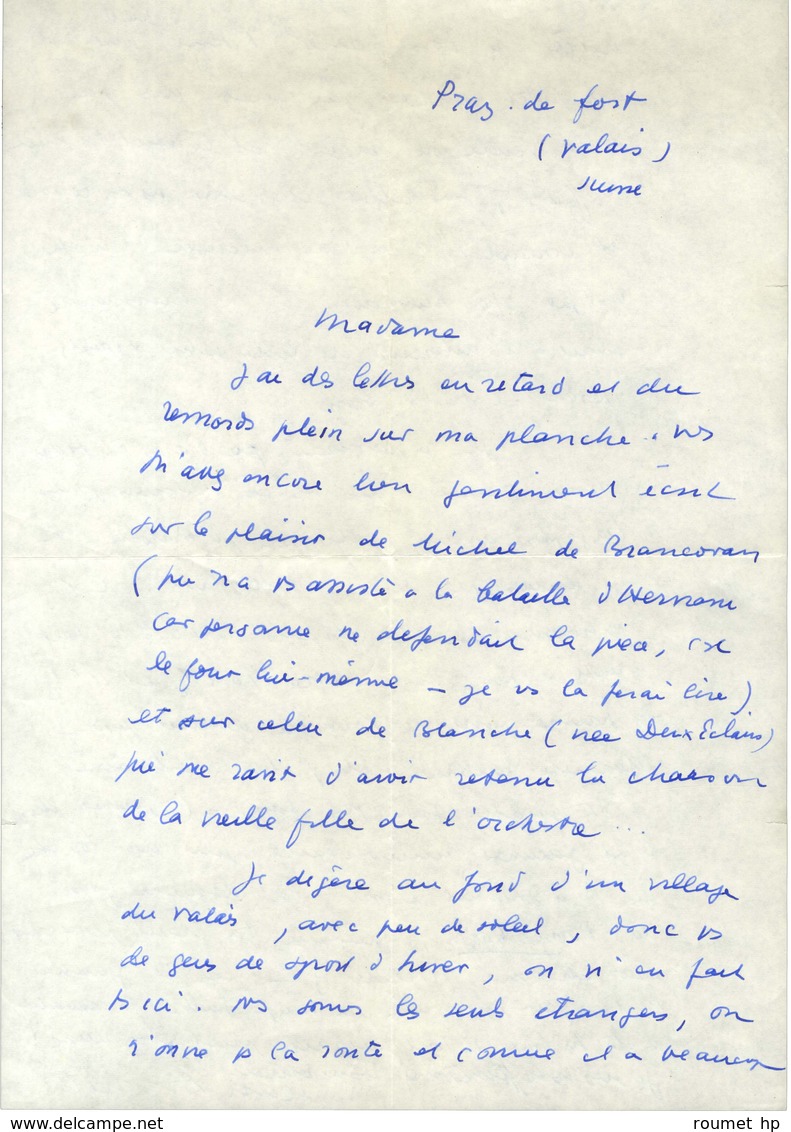 Praz. de fort
(Valais)
Suisse
Madame
J'ai des lettres en retard et du
remords plein sur ma planche. vs
m'avez encore bien gentiment écrit
sur le plaisir de Michel de Brancovan
(qui n'a ps assisté à la bataille d'Hernani
car personne ne défendait la pièce, c'est
le four lui-même — je vs la ferai lire)
et sur celui de Blanche (née Deux Eclairs)
qui me ravit d'avoir retenu la chanson
de la vieille fille de l'orchestre ...
Je digère au fond d'un village
du Valais, avec peu de soleil, donc ps
de gens de sport d'hiver, on n'en fait
ps ici. ns sommes les seuls étrangers, on
n'ouvre ps la route et comme il a beaucoup
www.delcampe.net
roumet hp